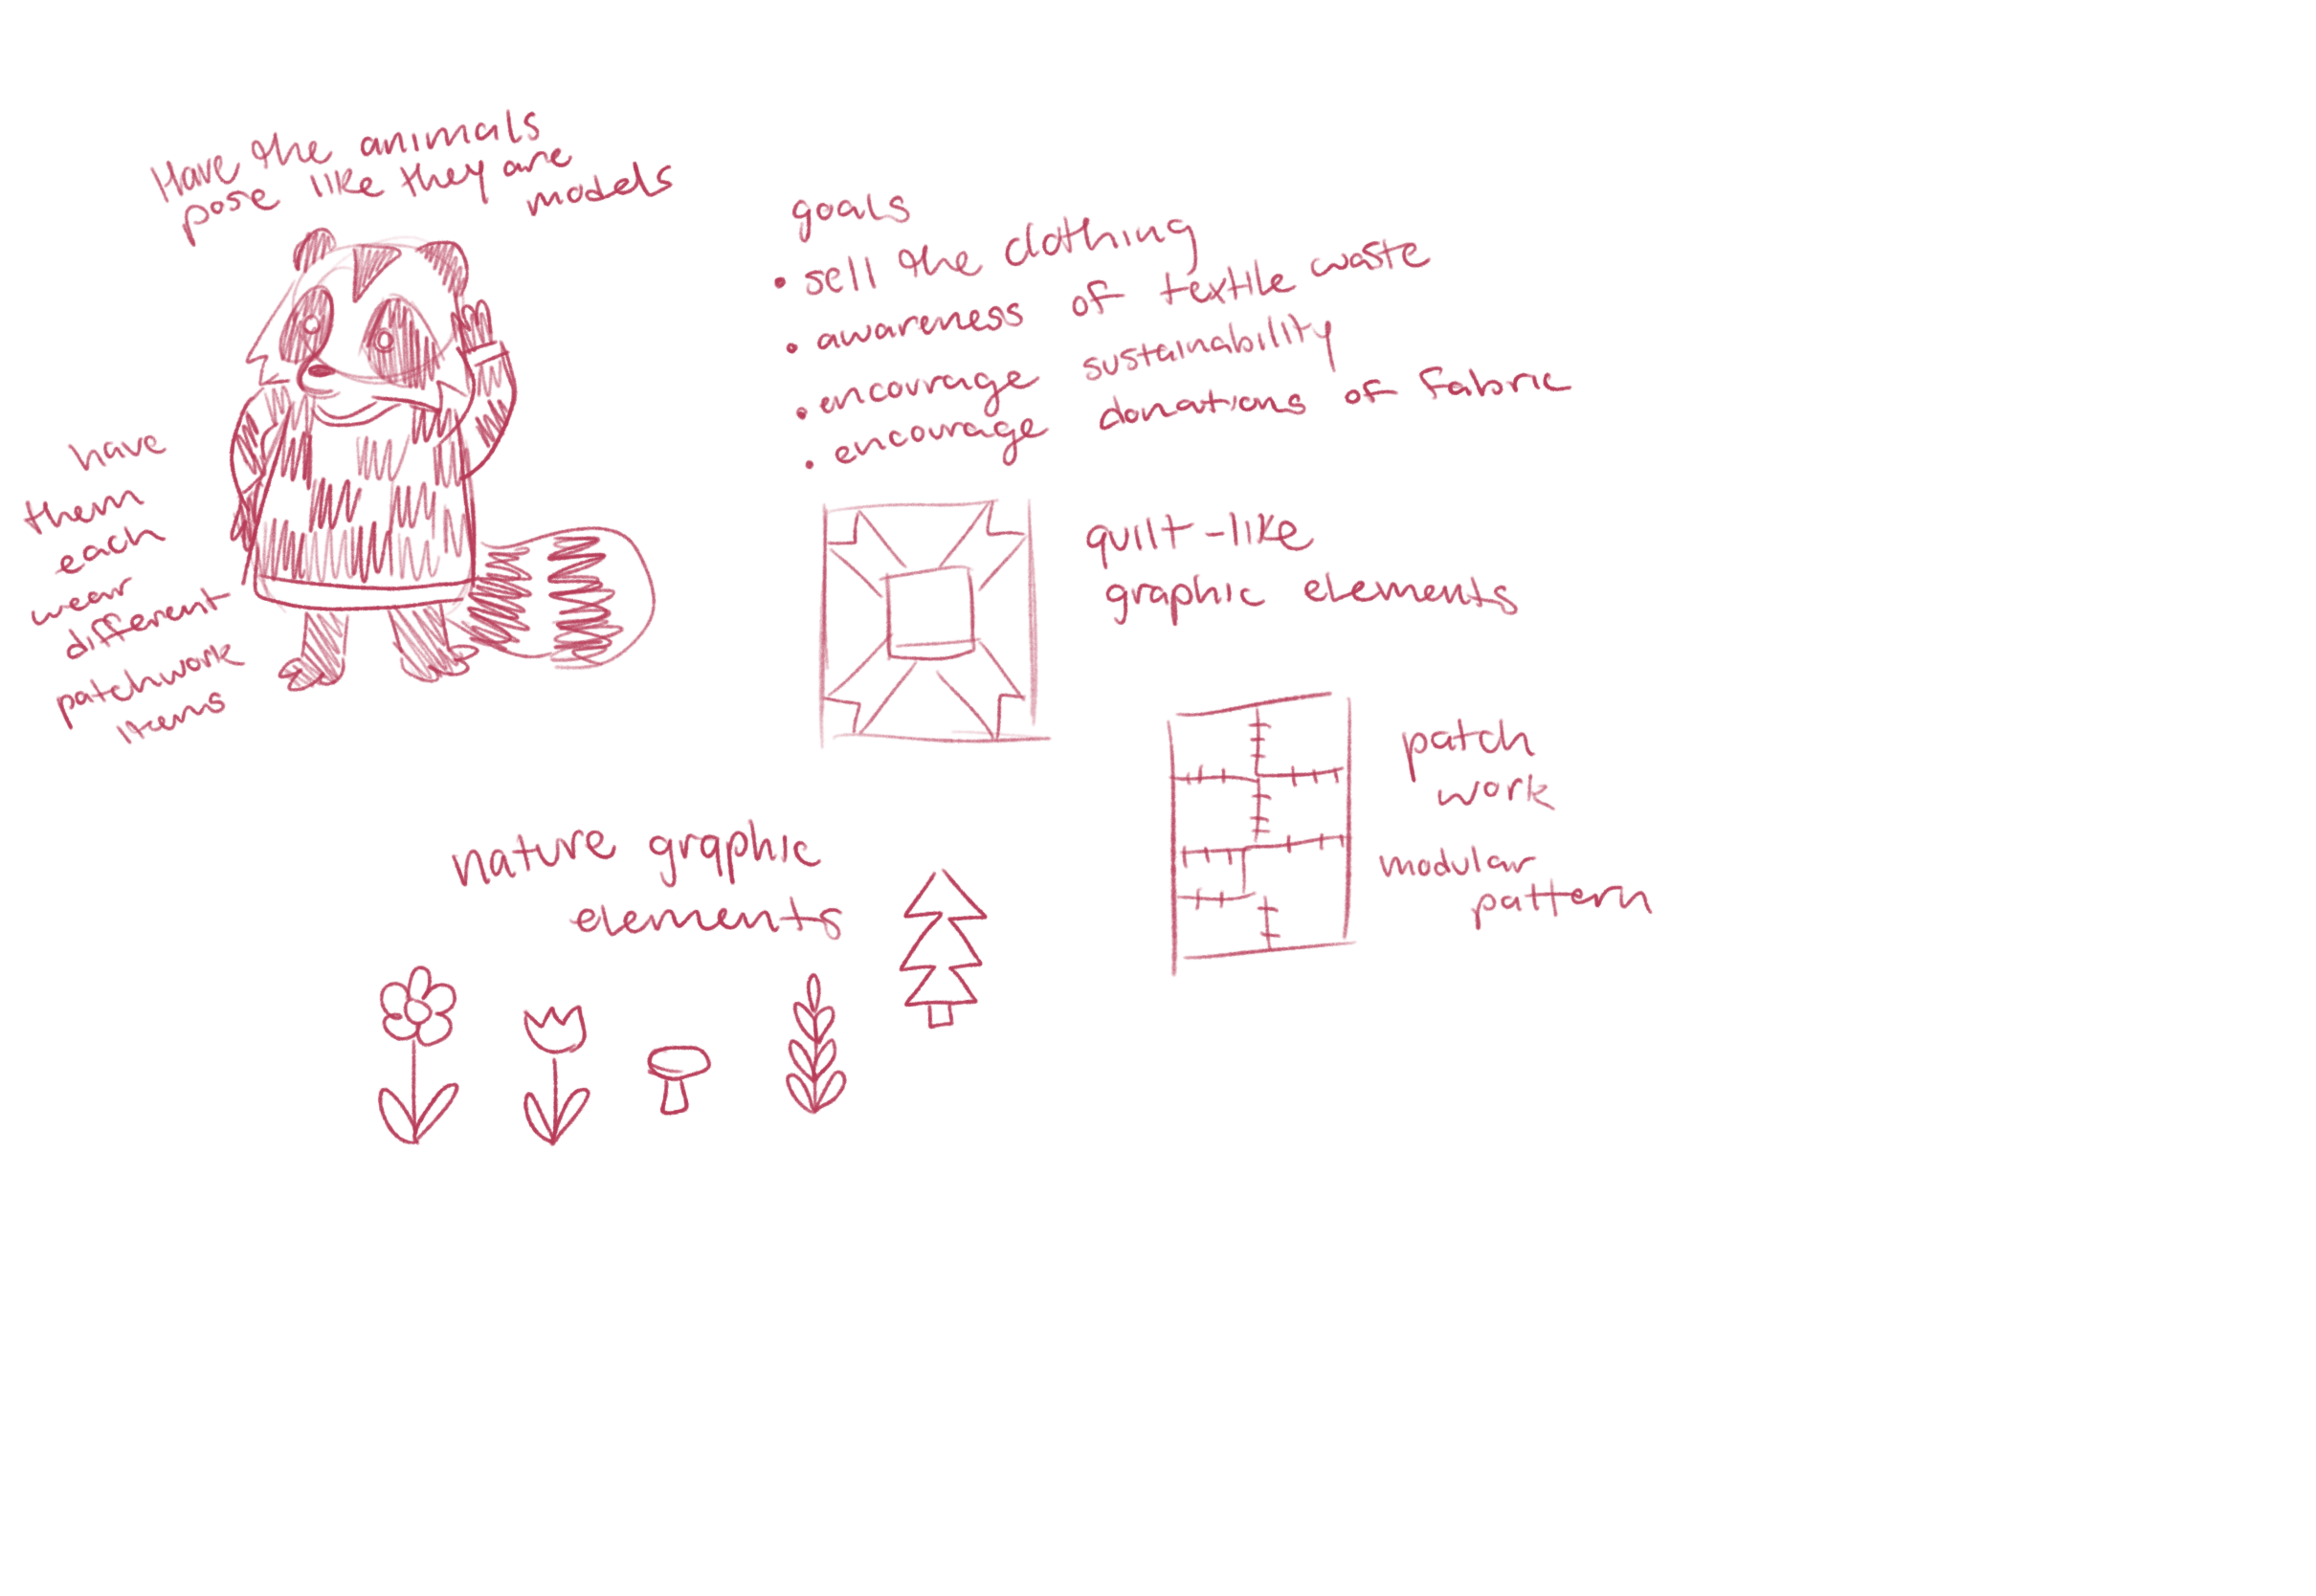 Have the animals
pose like they are
models
have
them
each
wear
different
patchwork
items
goals
• sell the clothing
• awareness of textile waste
• encourage sustainability
• encourage donations of fabric
quilt-like
graphic elements
patch
work
modular
pattern
nature graphic
elements